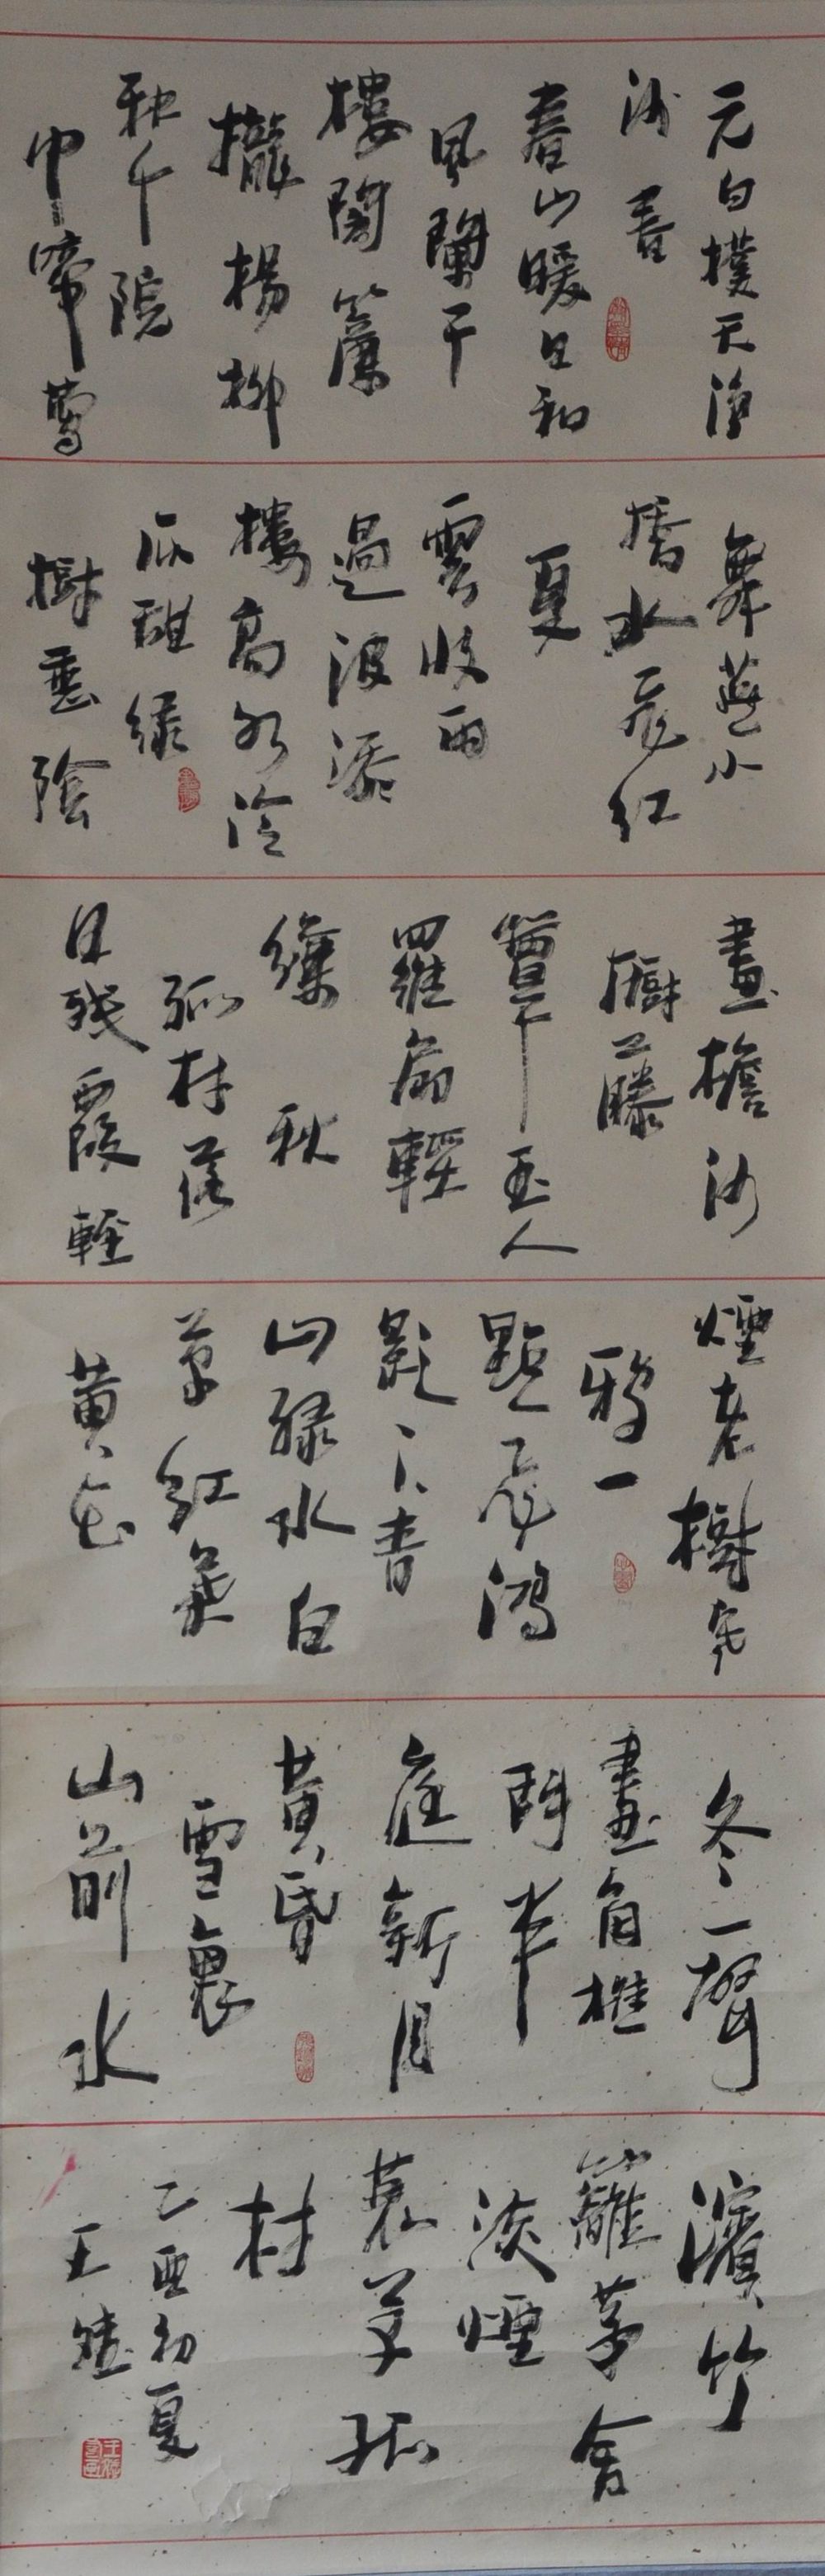 元白樸天淨
沙春
春山暖日和
風闌干
樓閣簾
櫳楊柳
秋千院
中啼鶯
舞燕小
橋水飛紅
夏
雲收雨
過波添
樓高水冷
瓜甜綠
樹垂陰
畫檐沙
櫥藤
簟玉人
羅扇輕
縑秋
孤村落
日殘霞輕
煙老樹寒
鴉一
點飛鴻
影下青
山綠水白
草紅葉
黃花
冬一聲
畫角樵
門半
庭新月
黃昏
雪裏
山前水
濱竹
籬茅舍
淡煙
衰草孤
村
乙酉初夏
王